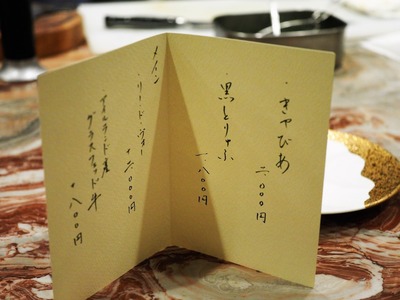 ・きゃびあ
二、〇〇〇円
・黒とりゅふ
一、八〇〇円
メイン
・リー・ド・ヴォー
+二、〇〇〇円
・アイルランド産
グラスフェッド牛
+八〇〇円